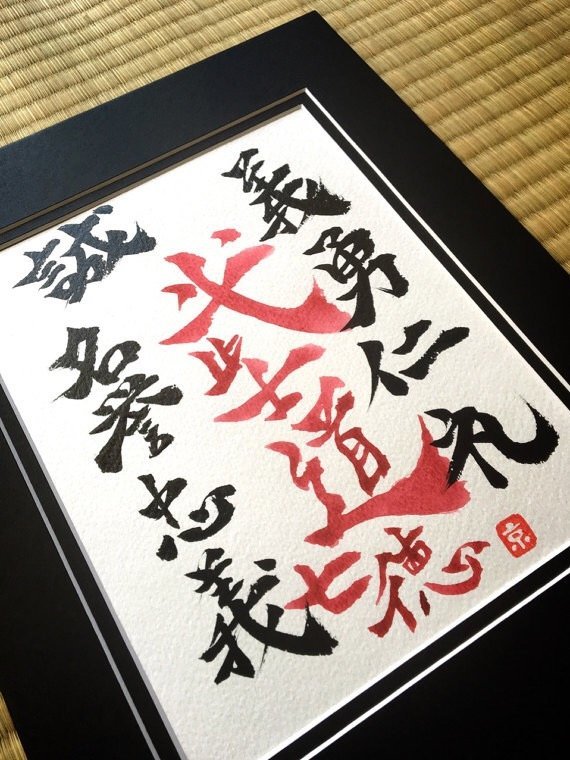 義勇仁礼
武士道
七徳
誠名誉忠義
京